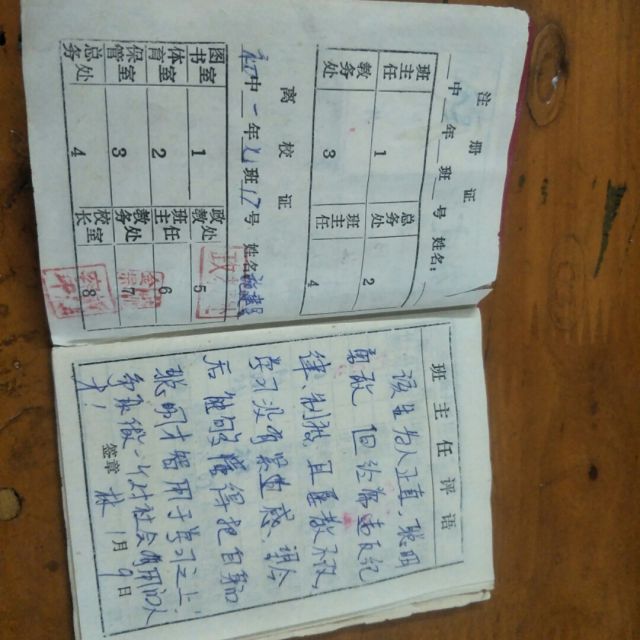 注册证
中 年 班 号 姓名：
班主任 1 总务处 2
教务处 3 班主任 4
离校证
初中一年 班17号 姓名
图书室 1 政教处 5
体育室 2 班主任 6
保管室 3 教务处 7
总务处 4 校长室 8
班主任评语
该生为人正直，聪明
勇敢，但经常违反纪
律、制度，且屡教不改，
学习没有紧迫感，望今
后能够懂得把自己的
聪明才智用于学习之上，
争取做一个对社会有用的人
才！
签章 林 1月9日